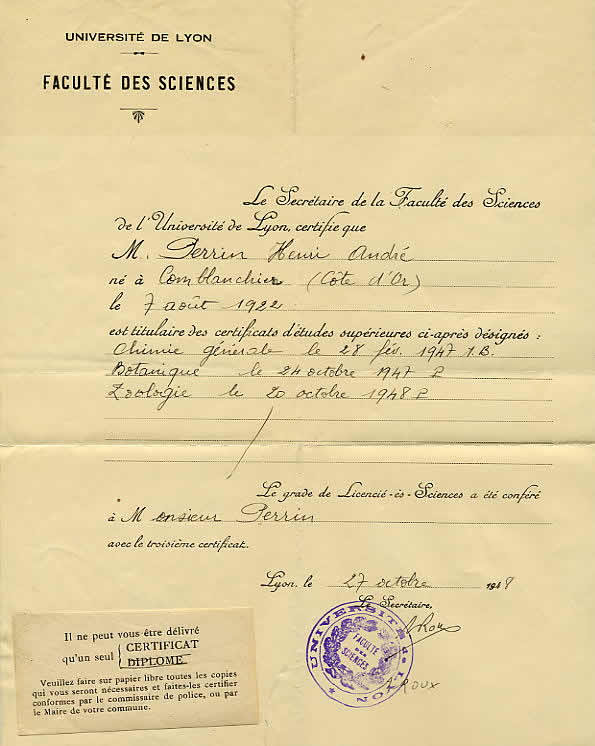 UNIVERSITÉ DE LYON
FACULTÉ DES SCIENCES
Le Secrétaire de la Faculté des Sciences
de l'Université de Lyon, certifie que
M. Perrin Henri André
né à Comblanchien (Côte d'Or)
le 7 août 1922
est titulaire des certificats d'études supérieures ci-après désignés :
Chimie générale le 28 fév. 1947 A.B.
Botanique le 24 octobre 1947 P
Zoologie le 20 octobre 1948 P
Le grade de Licencié-ès-Sciences a été conféré
à Monsieur Perrin
avec le troisième certificat.
Lyon, le 27 octobre 1948
Le Secrétaire,
Roux
UNIVERSITÉ LYON
FACULTÉ DES SCIENCES
Roux
Il ne peut vous être délivré
qu'un seul CERTIFICAT
DIPLOME
Veuillez faire sur papier libre toutes les copies
qui vous seront nécessaires et faites-les certifier
conformes par le commissaire de police, ou par
le Maire de votre commune.